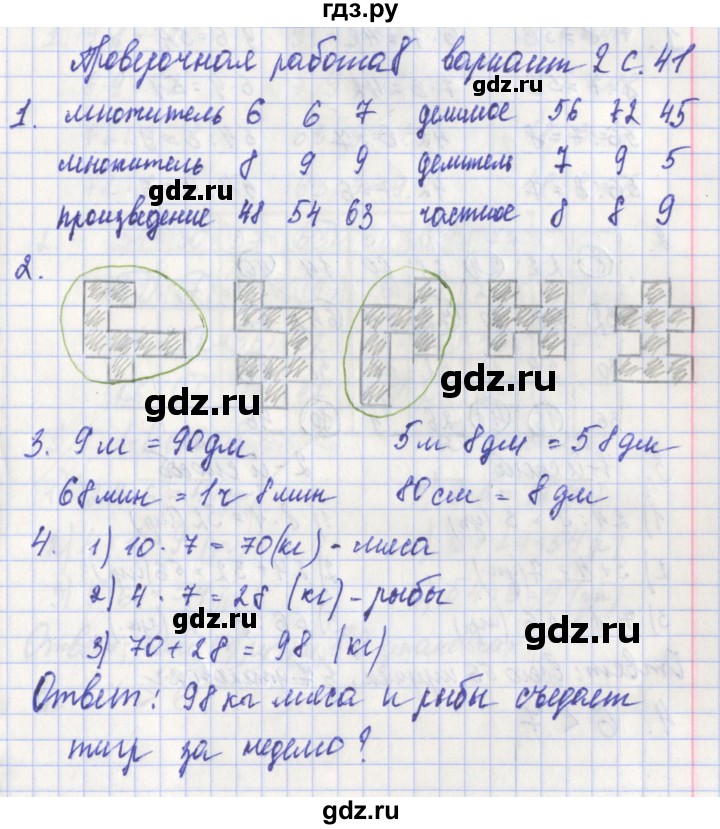 гдз.ру
Проверочная работа 8 вариант 2 с. 41
gdz.ru
1. множитель 6 6 7 делимое 56 72 45
множитель 8 9 9 делитель 7 9 5
gdz.ru gdz.ru
произведение 48 54 63 частное 8 8 9
2.
gdz.ru
gdz.ru
3. 9 м = 90 дм 5 м 8 дм = 58 дм
68 мин = 1 ч 8 мин 80 см = 8 дм
gdz.ru
4. 1) 10 · 7 = 70 (кг) - мяса
2) 4 · 7 = 28 (кг) - рыбы
gdz.ru
3) 70 + 28 = 98 (кг)
Ответ: 98 кг мяса и рыбы съедает
тигр за неделю?
gdz.ru
gdz.ru
gdz.ru